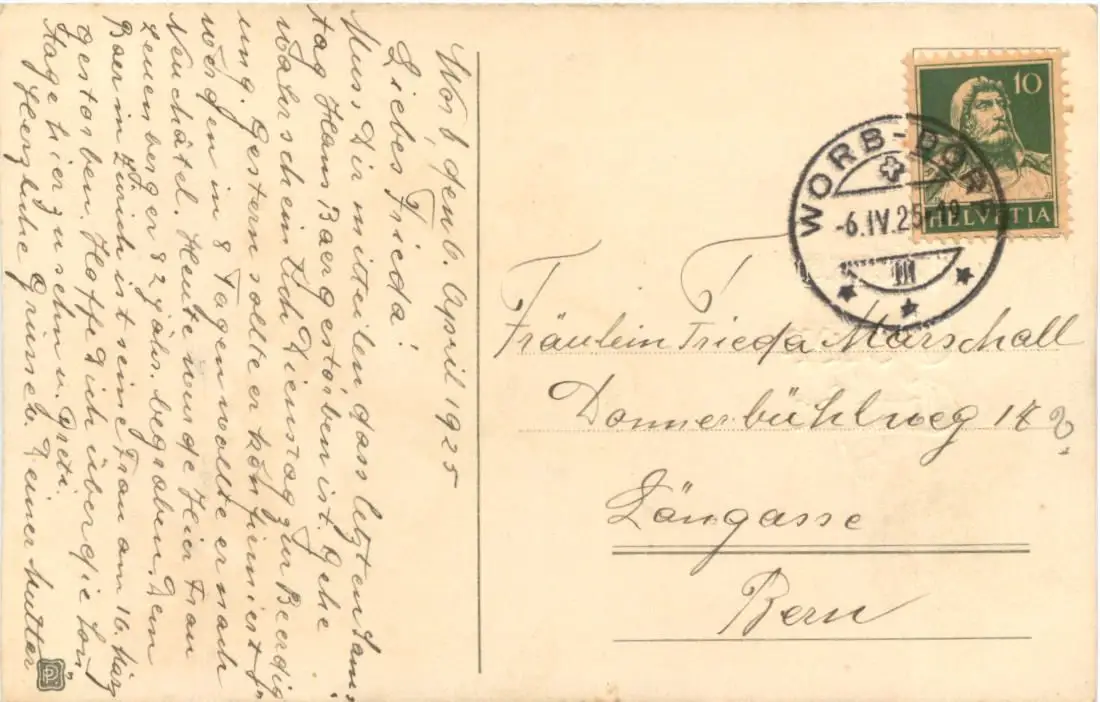 Worb, den 6. April 1925
Liebes Frieda!
Muss Dir mitteilen dass letzten Sams-
tag Hans Baer gestorben ist. Gehe
wahrscheintlich Dienstag zur Beerdig-
ung. Gestern sollte er konfirmiert
werden in 8 Tagen wollte er nach
Neuchâtel. Heute wurde Hier Frau
Leuenberger 82 jähr. begraben. Dem
Baer in Zürich ist seine Frau am 16. März
gestorben. Hoffe Dich über die
Tage hier zu sehn u. Greti.
Herzliche Grüsse v. Deiner Mutter.
PL
10
HELVETIA
WORB-DORF
-6.IV.25-19
III
Fräulein Frieda Marschall
Donnerbühlweg
Längasse
Bern